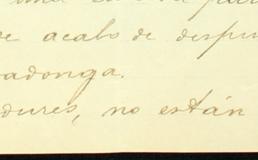 e acabo de despu
adonga.
dures, no están